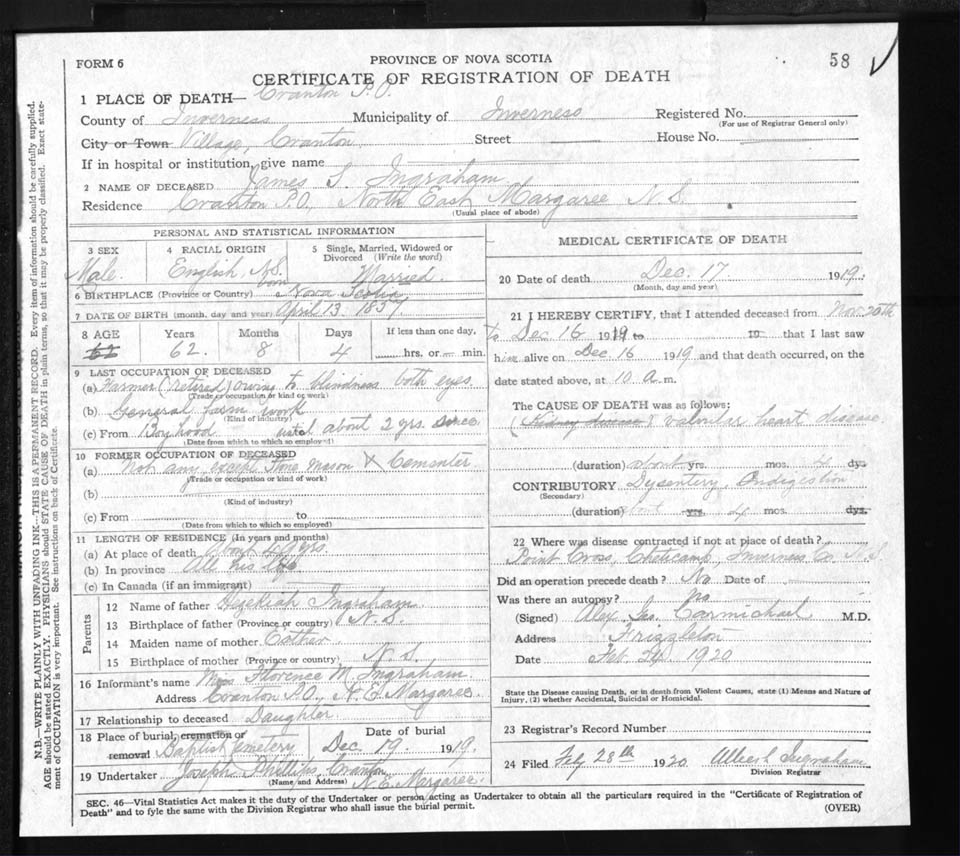 FORM 6
PROVINCE OF NOVA SCOTIA
58
CERTIFICATE OF REGISTRATION OF DEATH
1 PLACE OF DEATH— Cranton P.O.
County of Inverness Municipality of Inverness Registered No.
(For use of Registrar General only)
City or Town Village, Cranton Street House No.
If in hospital or institution, give name
2 NAME OF DECEASED James S. Ingraham
Residence Cranton P.O, North East Margaree N.S.
(Usual place of abode)
PERSONAL AND STATISTICAL INFORMATION
3 SEX 4 RACIAL ORIGIN 5 Single, Married, Widowed or Divorced (Write the word)
Male. English, N.S. born Married.
6 BIRTHPLACE (Province or Country) Nova Scotia
7 DATE OF BIRTH (month, day and year) April 13. 1857
8 AGE Years Months Days If less than one day,
62 62. 8 4 hrs. or min.
9 LAST OCCUPATION OF DECEASED
(a) Farmer (retired) owing to blindness both eyes
(Trade or occupation or kind of work)
(b) General farm work
(Kind of industry)
(c) From Boyhood until about 2 yrs. since
(Date from which to which so employed)
10 FORMER OCCUPATION OF DECEASED
(a) Not any except Stone Mason & Cementer
(Trade or occupation or kind of work)
(b)
(Kind of industry)
(c) From to
(Date from which to which so employed)
11 LENGTH OF RESIDENCE (In years and months)
(a) At place of death About yrs.
(b) In province All his life
(c) In Canada (if an immigrant)
Parents
12 Name of father Hezekiah Ingraham
13 Birthplace of father (Province or country) N.S.
14 Maiden name of mother
15 Birthplace of mother (Province or country) N.S.
16 Informant's name Miss Florence M. Ingraham
Address Cranton P.O, N.E. Margaree.
17 Relationship to deceased Daughter
18 Place of burial, cremation or removal Baptist Cemetery
Date of burial
Dec. 19. 1919.
19 Undertaker Joseph Phillips, Cranton
(Name, and Address) N.E. Margaree.
MEDICAL CERTIFICATE OF DEATH
20 Date of death Dec. 17 1919.
(Month, day and year)
21 I HEREBY CERTIFY, that I attended deceased from Nov. 20th
to Dec 16 1919 to 19 that I last saw
him alive on Dec 16 1919 and that death occurred, on the
date stated above, at 10 a.m.
The CAUSE OF DEATH was as follows:
(Kidney disease) valvular heart disease
(duration) about yrs. mos. dys
CONTRIBUTORY Dysentery, Indigestion
(Secondary)
(duration) about yrs. mos. dys.
22 Where was disease contracted if not at place of death?
Point Cross, Cheticamp, Inverness Co. N.S.
Did an operation precede death? No Date of
Was there an autopsy? no
(Signed) Alex. Jas. Carmichael M.D.
Address Frizzleton
Date Feb. 1920
State the Disease causing Death, or in death from Violent Causes, state (1) Means and Nature of
Injury, (2) whether Accidental, Suicidal or Homicidal.
23 Registrar's Record Number
24 Filed Feby 28th 1920 Ingraham
Division Registrar
SEC. 46—Vital Statistics Act makes it the duty of the Undertaker or person acting as Undertaker to obtain all the particulars required in the "Certificate of Registration of
Death" and to fyle the same with the Division Registrar who shall issue the burial permit.
(OVER)
N.B.—WRITE PLAINLY WITH UNFADING INK—THIS IS A PERMANENT RECORD. Every item of information should be carefully supplied.
AGE should be stated EXACTLY. PHYSICIANS should STATE CAUSE OF DEATH in plain terms, so that it may be properly classified. Exact state-
ment of OCCUPATION is very important. See instructions on back of Certificate.